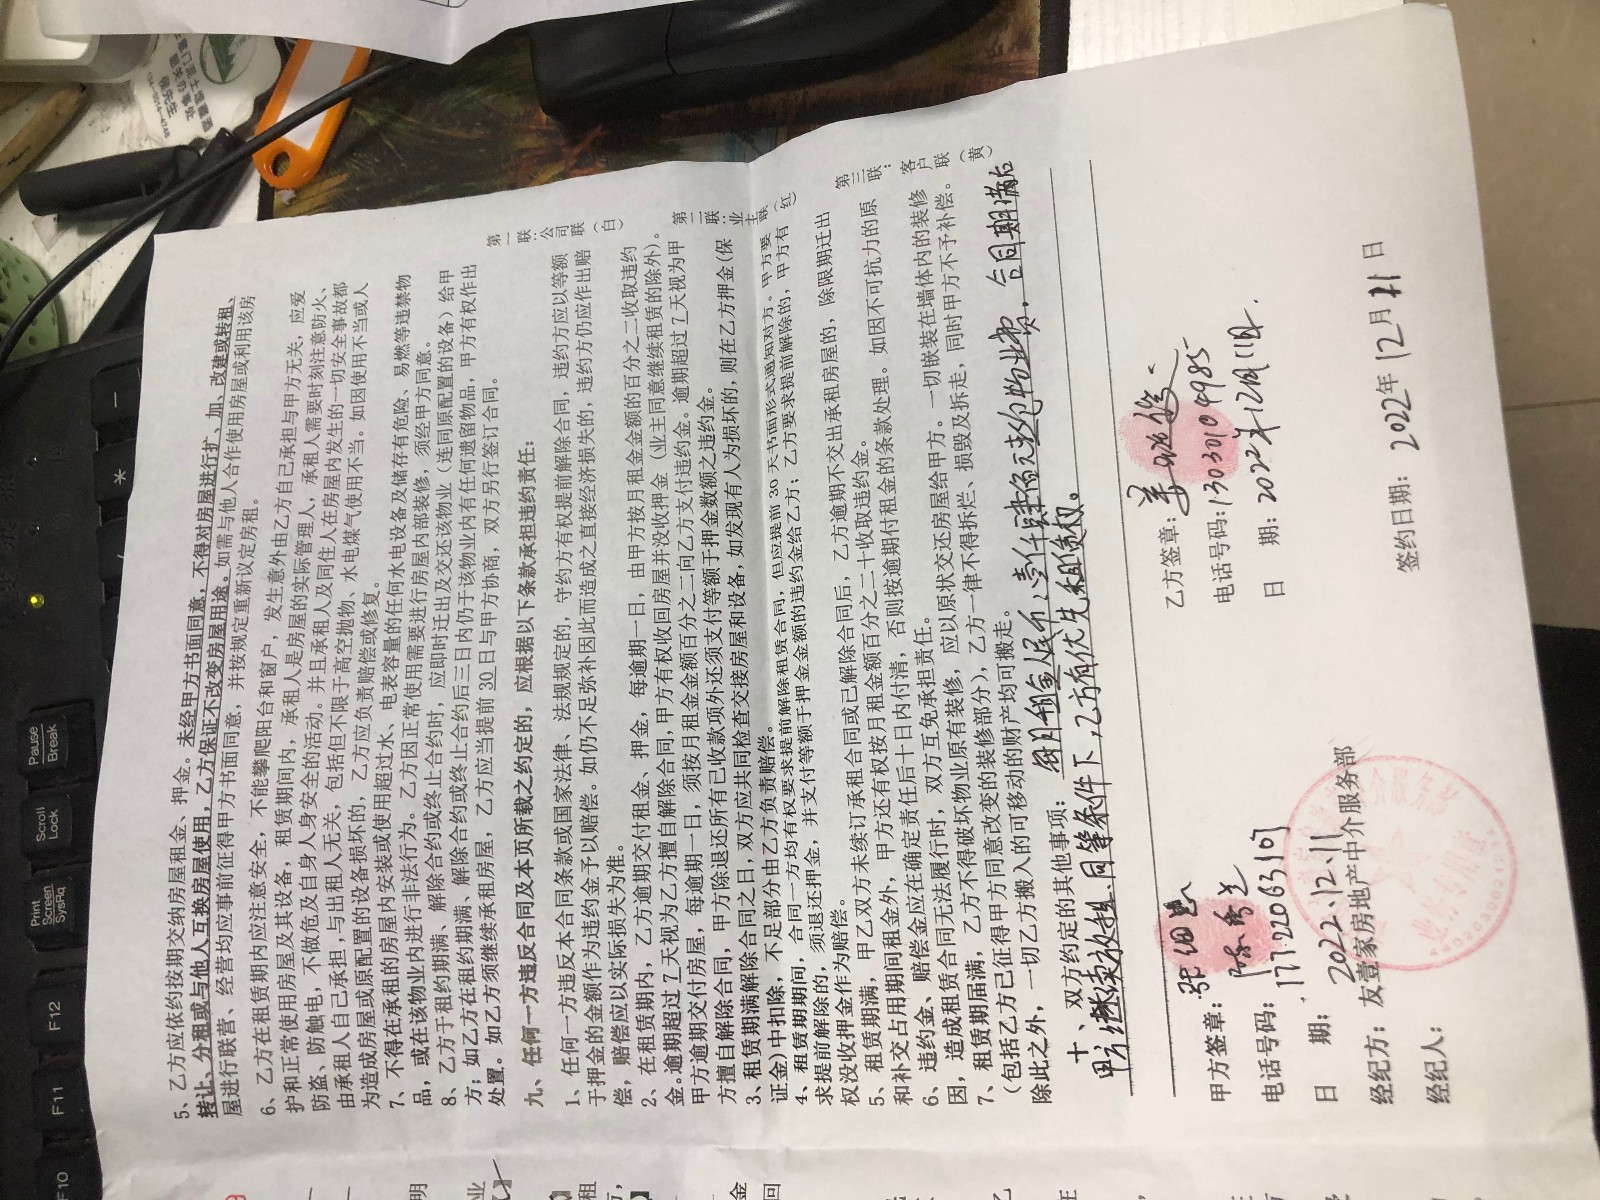 5、乙方应依约按期交纳房屋租金、押金。未经甲方书面同意，不得对房屋进行扩、加、改建或转租、
转让、分租或与他人互换房屋使用，乙方保证不改变房屋用途。如需与他人合作使用房屋或利用该房
屋进行联营、经营均应事前征得甲方书面同意，并按规定重新议定房租。
6、乙方在租赁期内应注意安全，不能攀爬阳台和窗户，发生意外由乙方自己承担与甲方无关，应爱
护和正常使用房屋及其设备，租赁期间内，承租人是房屋的实际管理人，承租人需要时刻注意防火、
防盗、防触电，不做危及自身人身安全的活动。并且承租人及同住人在房屋内发生的一切安全事故都
由承租人自己承担，与出租人无关，包括但不限于高空抛物、水电煤气使用不当。如因使用不当或人
为造成房屋或原配置的设备损坏的，乙方应负责赔偿或修复。
7、不得在承租的房屋内安装或使用超过水、电表容量的任何水电设备及储存有危险、易燃等违禁物
品，或在该物业内进行非法行为。乙方因正常使用需要进行房屋内部装修，须经甲方同意。
8、乙方于租约期满、解除合约或终止合约时，应即时迁出及交还该物业（连同原配置的设备）给甲
方；如乙方在租约期满、解除合约或终止合约后三日内仍于该物业内有任何遗留物品，甲方有权作出
处置。如乙方须继续承租房屋，乙方应当提前 30 日与甲方协商，双方另行签订合同。
九、任何一方违反合同及本页所载之约定的，应根据以下条款承担违约责任：
1、任何一方违反本合同条款或国家法律、法规规定的，守约方有权提前解除合同，违约方应以等额
于押金的金额作为违约金予以赔偿。如仍不足弥补因此而造成之直接经济损失的，违约方仍应作出赔
偿，赔偿应以实际损失为准。
2、在租赁期内，乙方逾期交付租金、押金，每逾期一日，由甲方按月租金金额的百分之二收取违约
金。逾期超过 7 天视为乙方擅自解除合同，甲方有权收回房屋并没收押金（业主同意继续租赁的除外）。
甲方逾期交付房屋，每逾期一日，须按月租金金额百分之二向乙方支付违约金。逾期超过 7 天视为甲
方擅自解除合同，甲方除退还所有已收款项外还须支付等额于押金数额之违约金。
3、租赁期满解除合同之日，双方应共同检查交接房屋和设备，如发现有人为损坏的，则在乙方押金(保
证金）中扣除，不足部分由乙方负责赔偿。
4、租赁期期间，合同一方均有权要求提前解除租赁合同，但应提前 30 天书面形式通知对方。甲方要
求提前解除的，须退还押金，并支付等额于押金金额的违约金给乙方；乙方要求提前解除的，甲方有
权没收押金作为赔偿。
5、租赁期满，甲乙双方未续订承租合同或已解除合同后，乙方逾期不交出承租房屋的，除限期迁出
和补交占用期间租金外，甲方还有权按月租金额百分之二十收取违约金。
6、违约金、赔偿金应在确定责任后十日内付清，否则按逾期付租金的条款处理。如因不可抗力的原
因，造成租赁合同无法履行时，双方互免承担责任。
7、租赁期届满，乙方不得破坏物业原有装修，应以原状交还房屋给甲方。一切嵌装在墙体内的装修
（包括乙方已征得甲方同意改变的装修部分），乙方一律不得拆烂、损毁及拆走，同时甲方不予补偿。
除此之外，一切乙方搬入的可移动的财产均可搬走。
十、双方约定的其他事项：每月租金人民币：壹仟肆佰元整约物业费，合同期满后
甲方继续放租，同等条件下，乙方有优先租赁权。
第一联：公司联（白）
第二联：业主联（红）
第三联：客户联（黄）
甲方签章：
电话号码：17722063107
日 期：2022.12.11
经纪方：友壹家房地产中介服务部
经纪人：
乙方签章：
电话号码：13030109985
日 期：2022年12月11日.
签约日期：2022年12月11日
业务专用章
Print Screen SysRq
Scroll Lock
Pause Break
F10
F11
F12